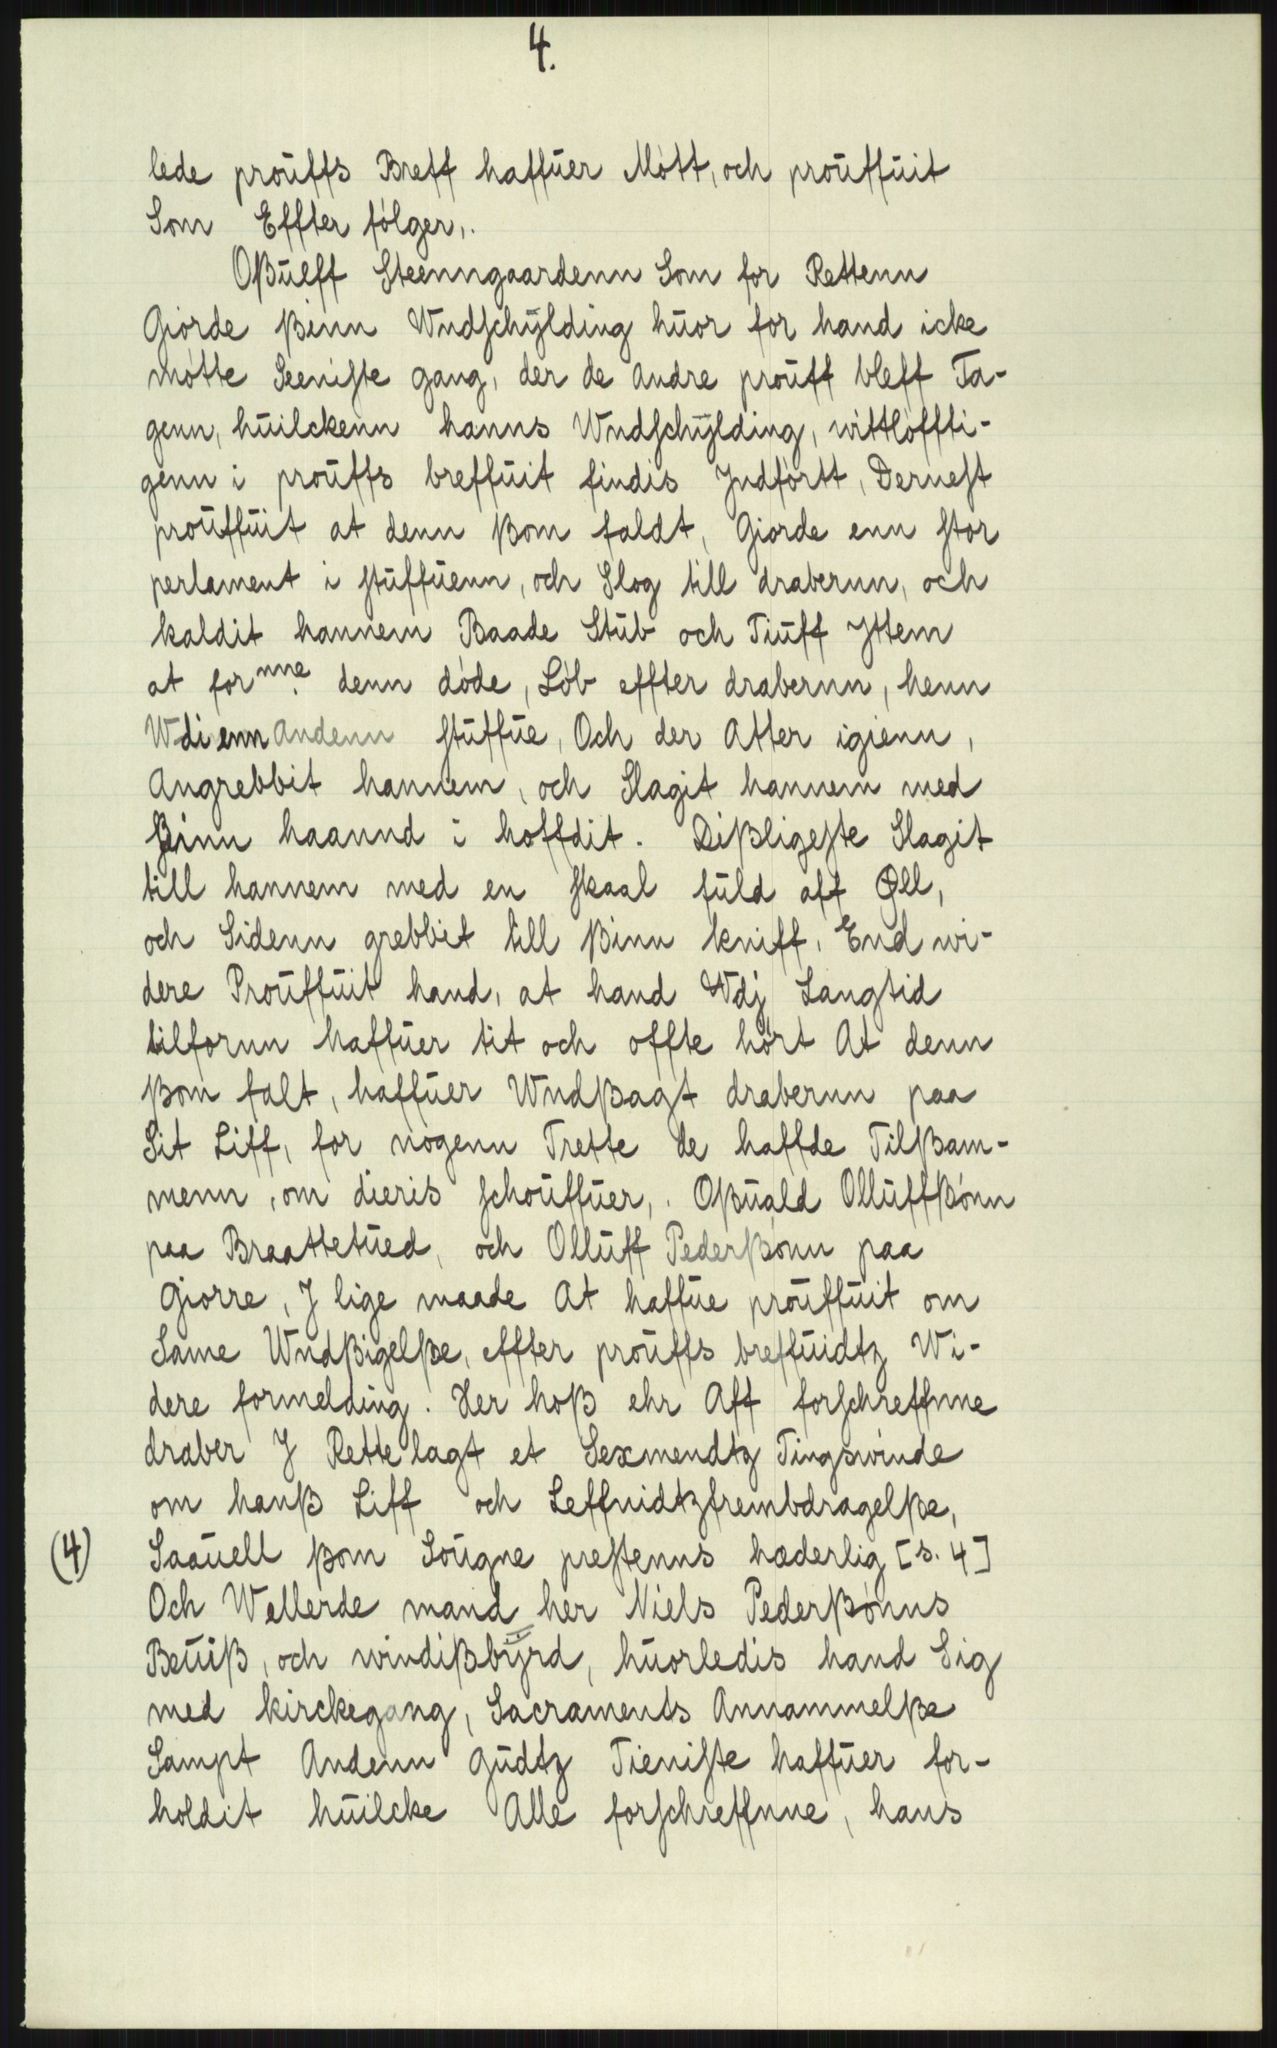 4.
lede prouffs Breff haffuer Mótt, och prouffuit
Som Effter fólger,.
Oßuelff Steenngaardenn Som for Rettenn
Giorde ßinn Wndschÿlding huor for hand icke
mótte Seeniste gang, der de Andre prouff bleff Ta-
genn, huilckenn hanns Wndschÿlding, wittlóffti-
genn i prouffs breffuit findis Jndfórtt, Dernest
prouffuit at denn ßom faldt, Giorde enn stor
perlament i stuffuenn, och Slog till drabernn, och
kaldit hannem Baade Stub och Tiuff Jttem
at for nne. denn dóde, Lób effter drabernn, henn
Wdi enn Andenn stuffue, Och der Atter igienn,
Angrebbit hannem, och Slagit hannem med
ßinn haannd i hoffdit. Dißligeste Slagit
till hannem med en skaal fuld aff Øll,
och Sidenn grebbit till ßinn kniff, End wi-
dere Prouffuit hand, at hand Wdj Langtid
tilfornn haffuer tit och offte hórt At denn
ßom falt, haffuer Wndßagt drabernn paa
Sit Liff, for nógenn Trette de haffde Tilßam-
menn, om dieris schouffuer,. Oßuald Olluffßónn
paa Braattetued, och Olluff Pederßónn paa
Giorre, J lige maade At haffue prouffuit om
Same Wndßigelße, effter prouffs breffuidtz Wi-
dere formelding. Her hoß ehr Aff forschreffnne
draber J Rette lagt et Sexmendtz Tingswinde
om hanß Liff och Leffnidtzfrembdragelße,
(4) Saauell ßom Sougne prestenns hæderlig [s. 4]
Och Wellerde mand her Niels Pederßónns
Beuiß, och windißbÿrd, huorledis hand Sig
med kirckegang, Sacraments Annammelße
Sampt Andenn Gudtz Tieniste haffuer for-
holdit huilcke Alle forschreffnne, hans